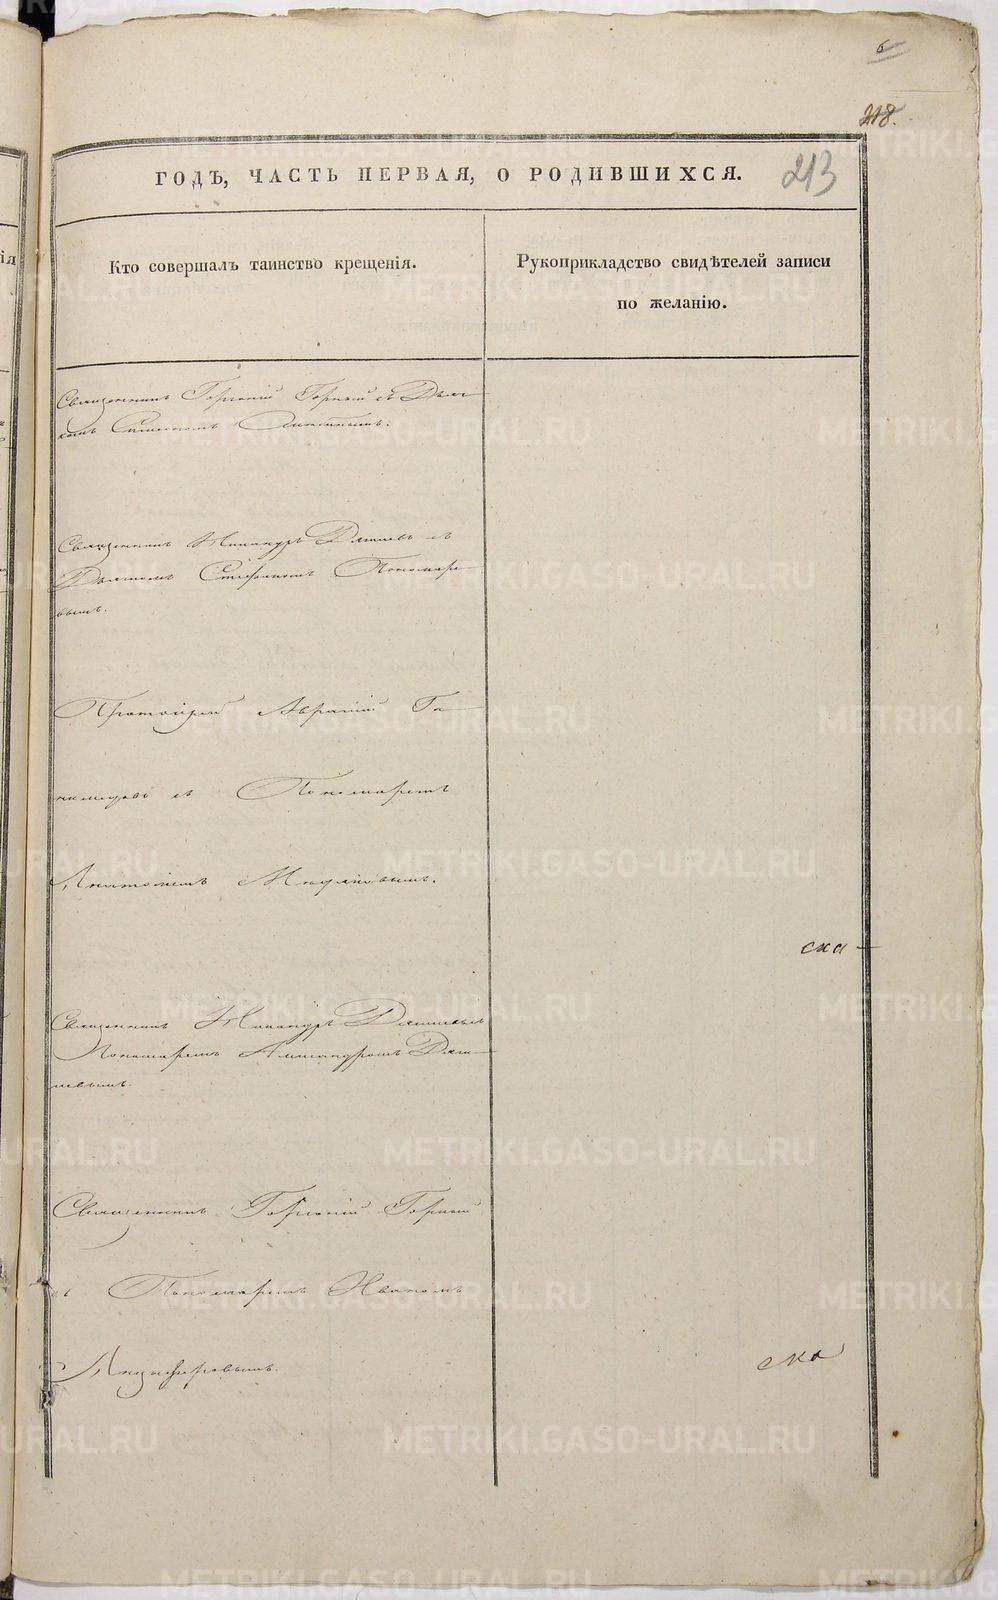 6
218.
213
ГОДЪ, ЧАСТЬ ПЕРВАЯ, О РОДИВШИХСЯ.
Кто совершалъ таинство крещенія.
Рукоприкладство свидѣтелей записи
по желанію.
Священникъ Георгій Горный съ Дьяч-
комъ
Священникъ Никандръ съ
Дьячкомъ Стефаномъ Пономаре-
вымъ.
Протоіерей Аврамій Га-
нимедовъ съ Пономаремъ
Анатоліемъ
ска
Священникъ Никандръ
Пономаремъ Александромъ
Священникъ Георгій Горный
съ Пономаремъ Иваномъ
Анцыферовымъ.
ска
METRIKI.GASO-URAL.RU